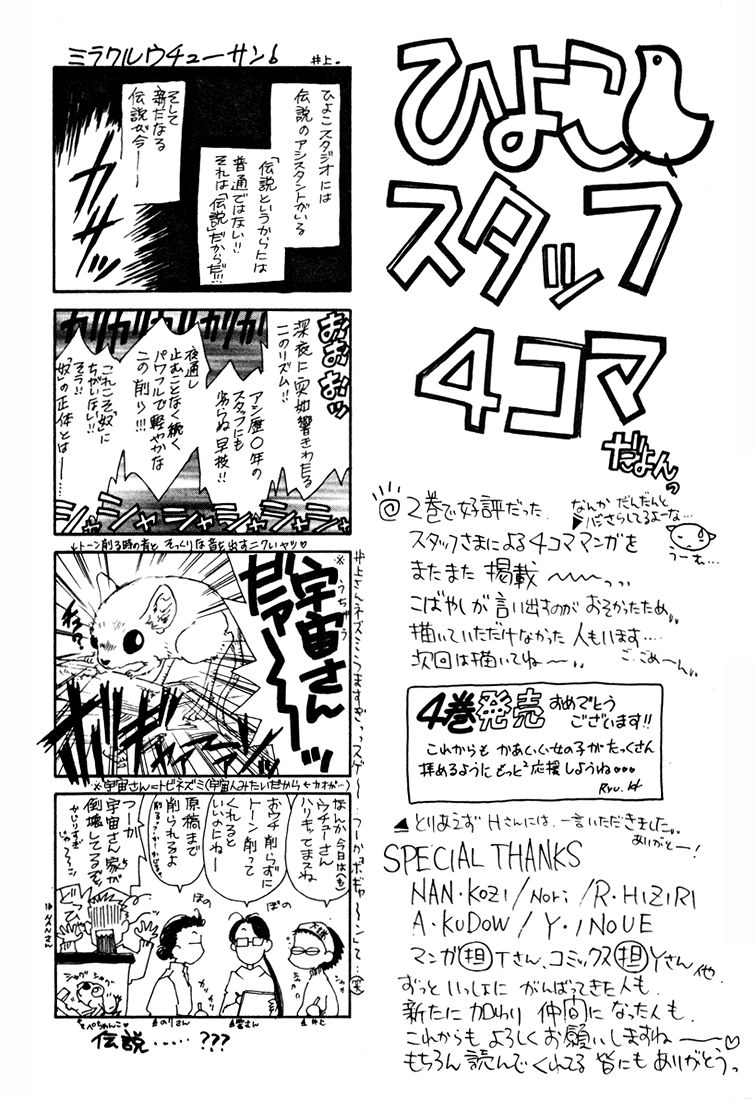 ひよこ
スタッフ
4コマ
だよんっ
◎2巻で好評だった
スタッフさまによる4コママンガを
またまた掲載〜〜〜っっ
こばやしが言い出すのがおそかったため、、
描いていただけなかった人もいます….
次回は描いてね〜〜、、
ご、ごめーん、、
なんかだんだんと
うーむ…
4巻発売おめでとう
ございます!!
これからもかあいい女の子がたっくさん
拝めるようにもっと²応援しようね♡♡♡
Ryu.H
▲とりあえずHさんには、一言いただきました。、
ありがとー!
SPECIAL THANKS
NAN・KOZI/NORI/R・HIZIRI
A・KUDOW/Y・INOUE
マンガ担Tさん、コミックス担Yさん他
ずっといっしょにがんばってきた人も、
新たに加わり仲間になった人も、
これからもよろしくお願いしますね〜〜♡
もちろん読んでくれてる皆にもありがとうっ
ミラクルウチューサン♭
井上。
ひよこスタジオには
伝説のアシスタントがいる
「伝説というからには
普通ではない!!
それは「伝説」だからだ!!!
そして
新たなる
伝説が今――
カサッ
おおおッ
ガリガリガリ
深夜に突如響きわたる
このリズム!!
アシ歴○年の
スタッフにも
劣らぬ早技!!
夜通し
止むことなく続く
パワフルで軽やかな
この削り!!!
これこそ「奴」に
ちがいない!!
そう!!
「奴」の正体とは――
シャシャシャシャ
↓トーン削る時の音とそっくりな音を出すニクいヤツ♡
※宇宙さん
うちゅう
だァ〜〜〜ッ
※宇宙さん=トビネズミ(宇宙人みたいだから
なんか今日は
ウチューさん
ハリキッてますね
おウチ削らずに
トーン削って
くれると
いいのにねー
原稿まで
削られるよ
つーか
宇宙さん家が
倒壊してるぞ
かじりすぎ
ぼの
ぼの
のりさん
聖さん
井上
伝説……???